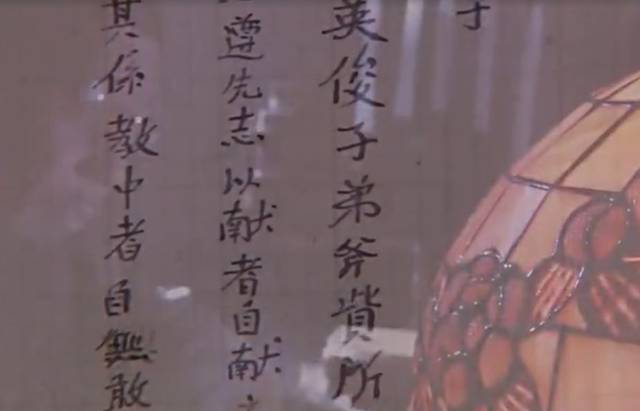 子
英俊子弟斧貲所
遵先志以献者自献
其係教中者自無敢